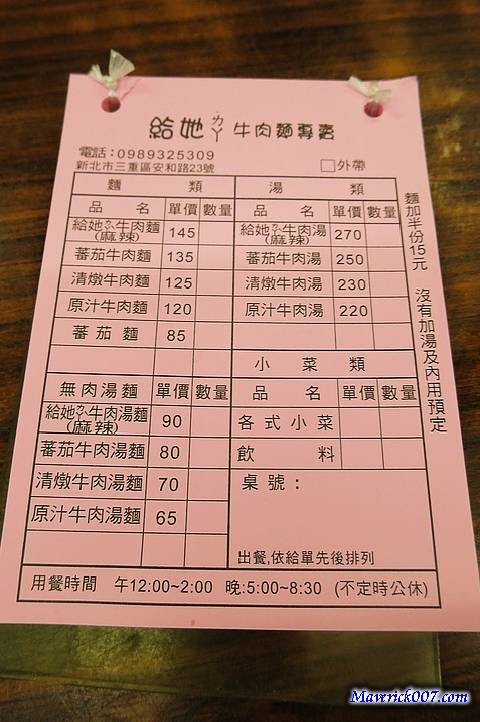 給她ㄉㄚˋ 牛肉麵專賣
電話：0989325309
新北市三重區安和路23號 □外帶
麵 類
品 名 單價 數量
給她ㄉㄚˋ牛肉麵(麻辣) 145
蕃茄牛肉麵 135
清燉牛肉麵 125
原汁牛肉麵 120
蕃茄麵 85
無肉湯麵 單價 數量
給她ㄉㄚˋ牛肉湯麵(麻辣) 90
蕃茄牛肉湯麵 80
清燉牛肉湯麵 70
原汁牛肉湯麵 65
湯 類
品 名 單價 數量
給她ㄉㄚˋ牛肉湯(麻辣) 270
蕃茄牛肉湯 250
清燉牛肉湯 230
原汁牛肉湯 220
小 菜 類
品 名 單價 數量
各式小菜
飲 料
桌號：
出餐,依給單先後排列
麵加半份15元 沒有加湯及內用預定
用餐時間 午12:00~2:00 晚:5:00~8:30 (不定時公休)
Maverick007.com